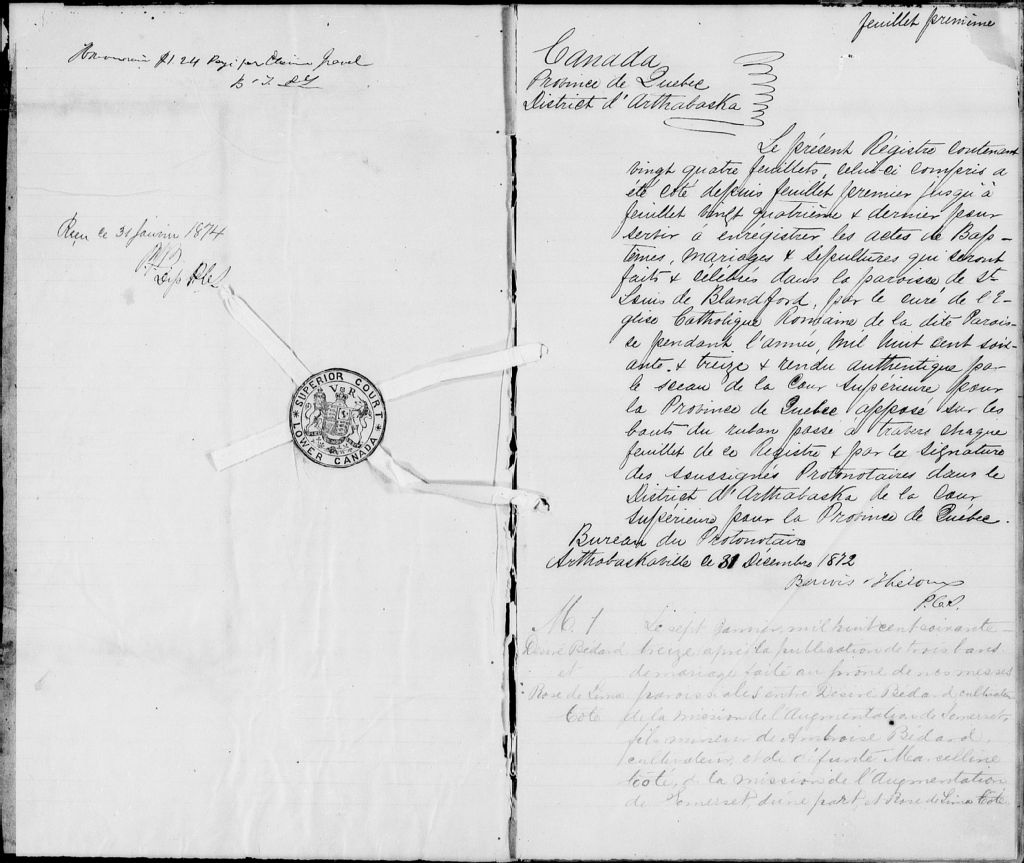 Honoraires $1.24 Payé par Gravel
Reçu ce 31 Janvier 1874
Dep P.C.S
SUPERIOR COURT
V R
LOWER CANADA
feuillet premième
Canada
Province de Quebec
District d'Arthabaska
Le présent Régistre contenant
vingt quatre feuillets, celui-ci compris a
été coté depuis feuillet premier jusqu'à
feuillet vingt quatrième & dernier pour
servir à enrégistrer les actes de Bap-
têmes, mariages & sépultures qui seront
faits & célébrés dans la paroisse de St
Louis de Blandford, par le curé de l'E-
glise Catholique Romaine de la dite Parois-
se pendant l'année, mil huit cent soix-
ante & treize & rendu authentique par
le sceau de la Cour Supérieure pour
la Province de Quebec apposé sur les
bouts du ruban passé à travers chaque
feuillet de ce Registre & par la signature
des soussignés Protonotaires dans le
District d'Arthabaska de la Cour
Supérieure pour la Province de Québec.
Bureau du Protonotaire
Arthabaskaville ce 31 Décembre 1872
Barwis & Théroux
P.C.S.
M. 1
Désiré Bedard
et
Rose de Lima
Coté
Le sept Janvier, mil huit cent soixante-
treize, après la publication de trois bans
de mariage faite au prône de nos messes
paroissiales entre Désiré Bedard, cultivateur
de la mission de l'Augmentation de Somerset,
fils mineur de Ambroise Bedard,
cultivateur, et de défunte Marcelline
Coté, de la mission de l'Augmentation
de Somerset, d'une part, et Rose de Lima Coté